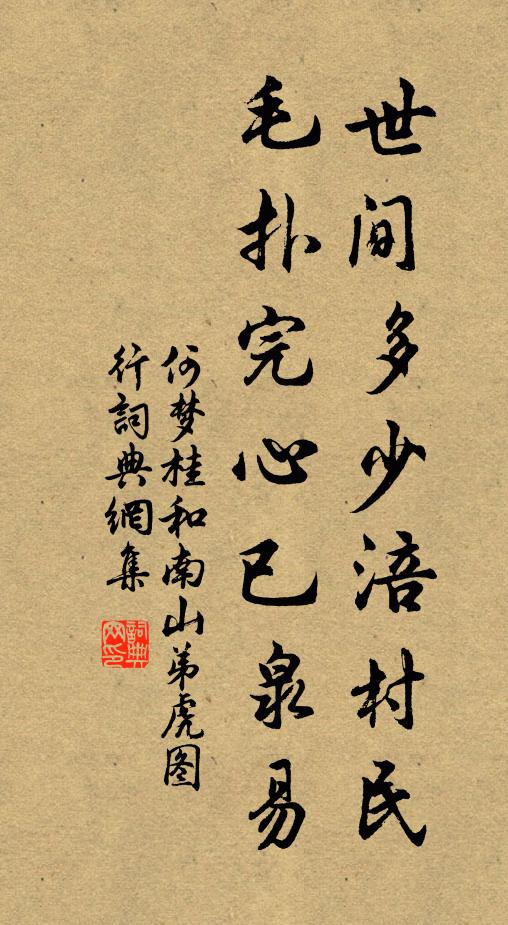 世间多少涪村民
毛扑完心已泉易
何梦桂和南山弟虎图
行詞典網集
詞典
网印